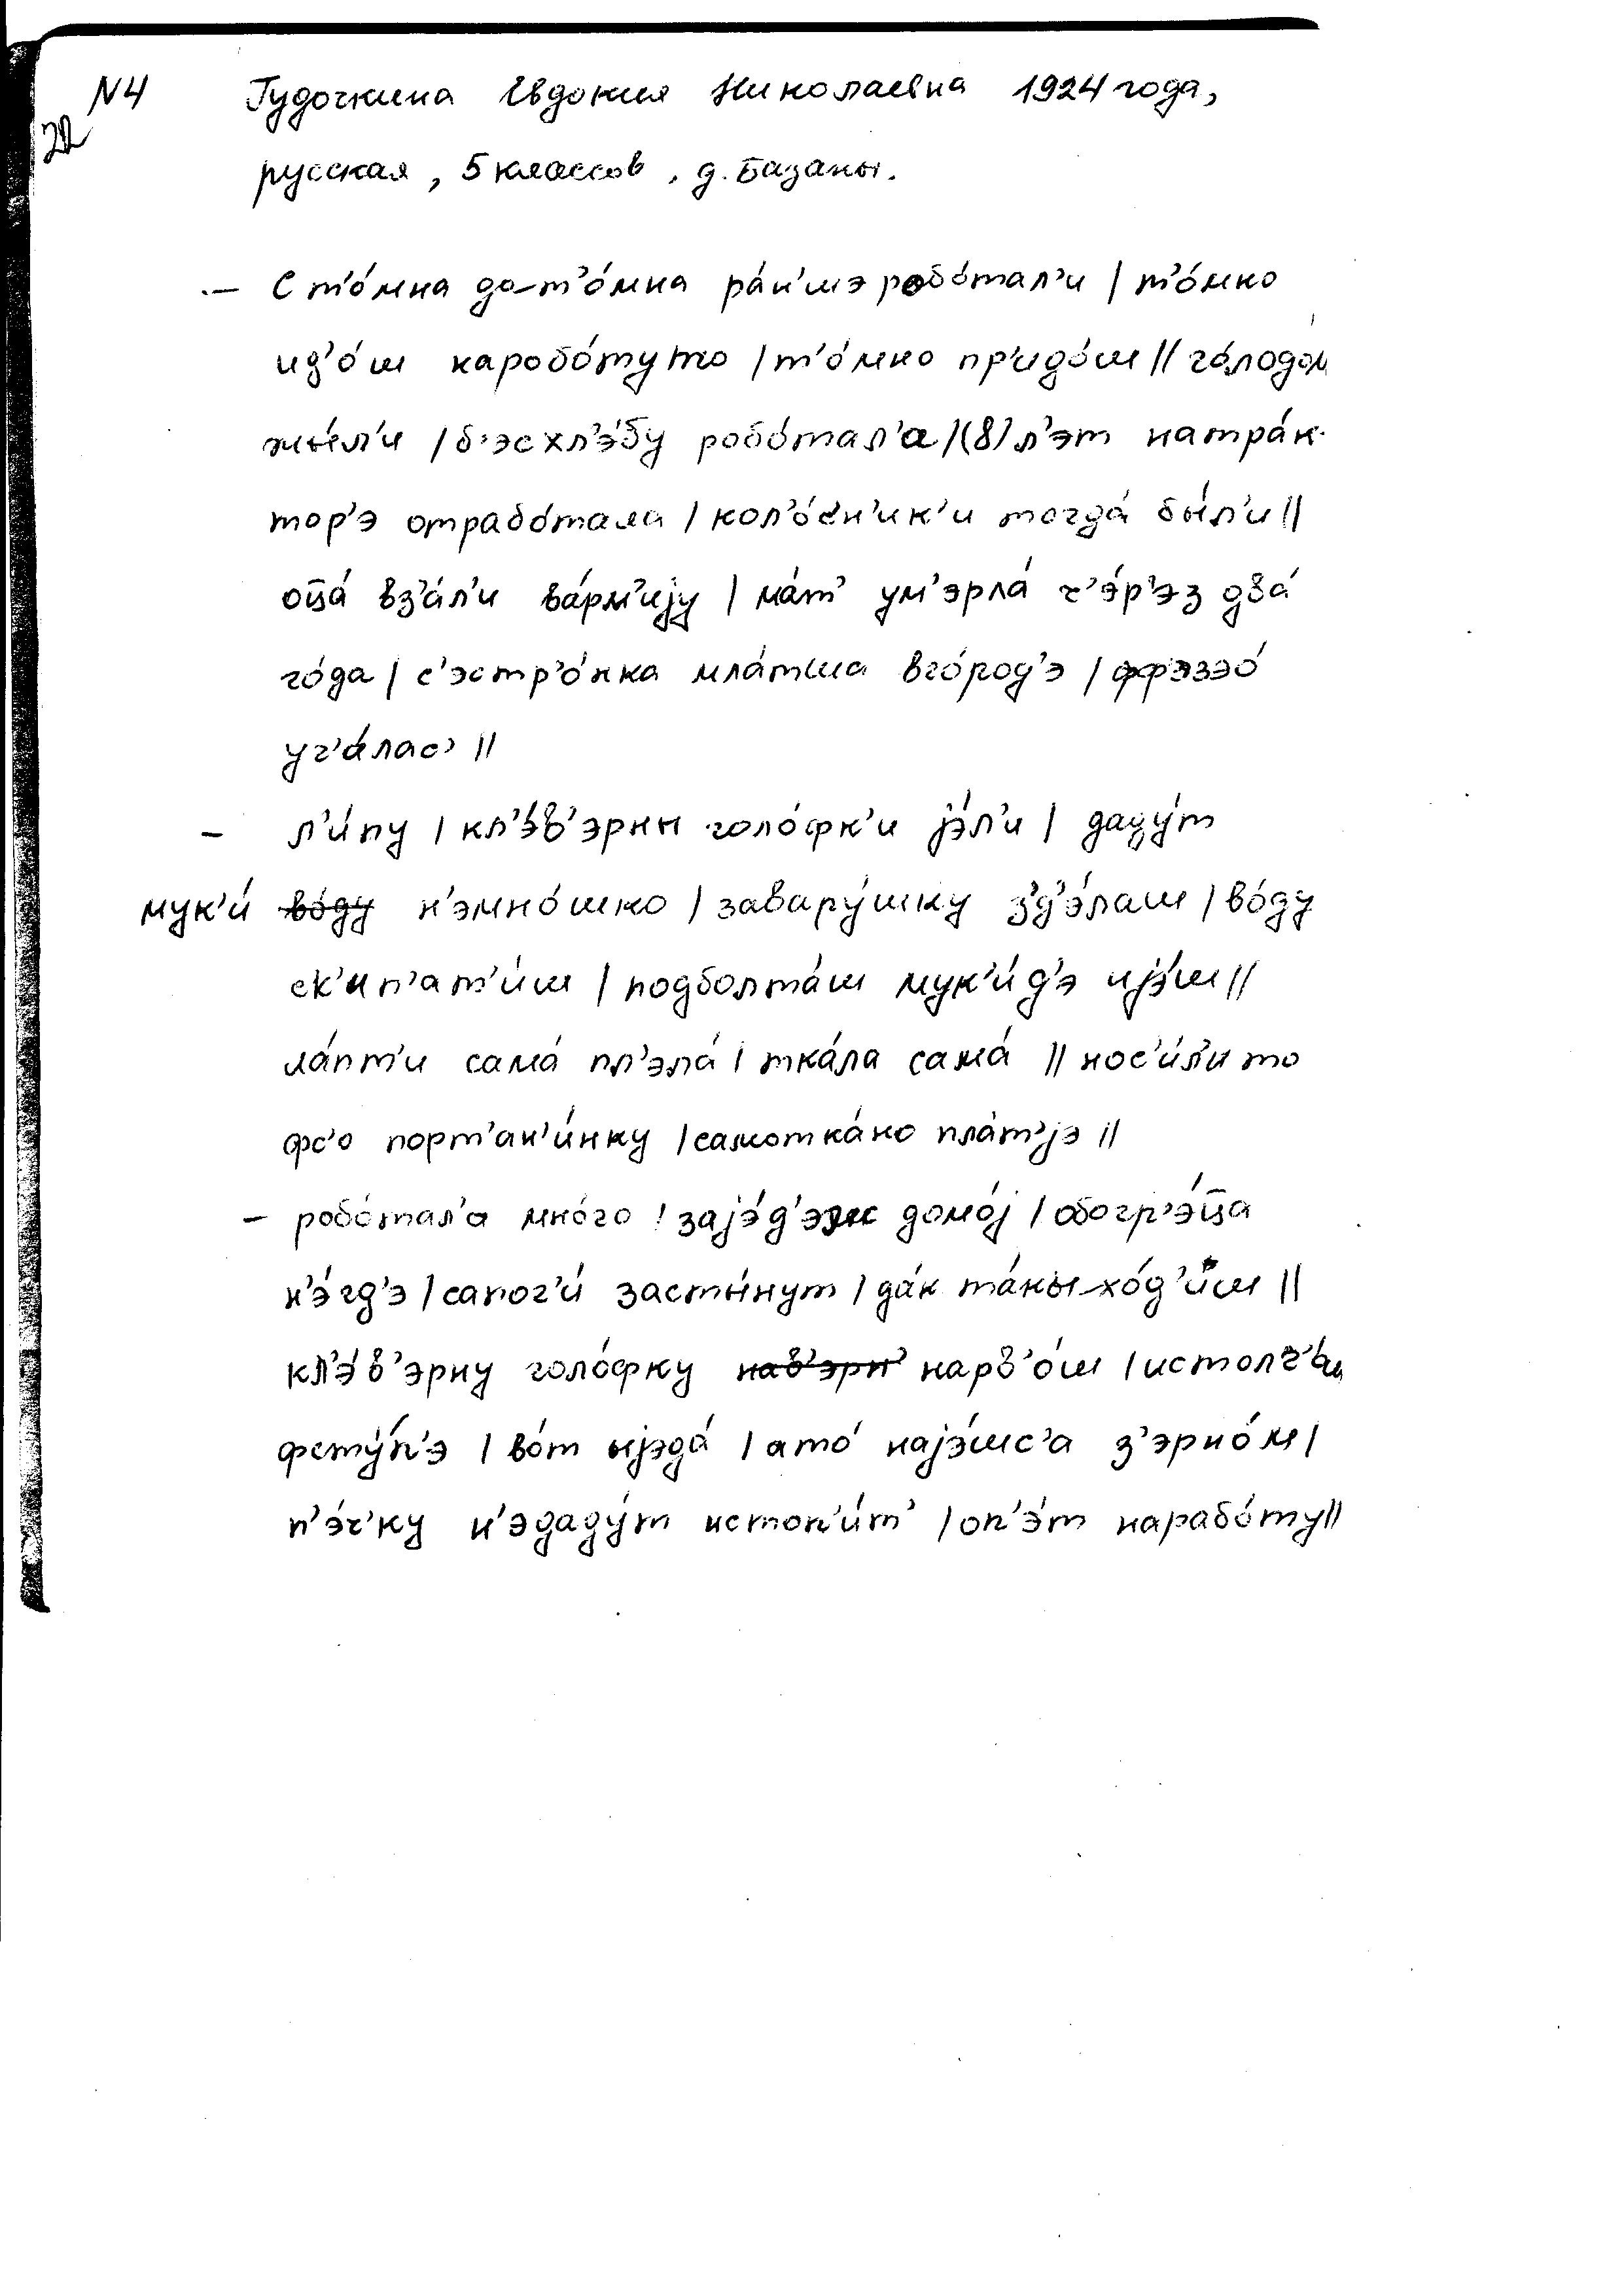 N4 Гудочкина Евдокия Николаевна 1924 года,
22
русская, 5 классов, д. Базаны.
— С т'о́мна до т'о́мна ра́н'шэ робо́тал'и | т'о́мно
ид'о́ш каробо́туто | т'о́мно пр'идо́ш || го́лодом
жы́л'и | б'эсхл'э́бу робо́тал'а | (8) л'эт натра́к-
тор'э отрабо́тала | кол'о́сн'ик'и тогда́ бы́л'и ||
оца́ вз'а́л'и ва́рм'иjу | ма́т' ум'эрла́ ч'э́р'эз два́
го́да | с'эстр'о́нка мла́тша вго́род'э | ффэзэо́
уч'а́лас' ||
— л'и́пу | кл'э́в'эрны голо́фк'и jэ́л'и | даду́т
мук'и́ во́ду н'эмно́шко | завару́шку з'д'э́лаш | во́ду
ск'ип'ат'и́ш | подболта́ш мук'и́д'э иjэ́ш ||
ла́пт'и сама́ пл'эла́ | тка́ла сама́ || нос'и́л'и то
фс'о порт'ан'и́нку | самотка́но пла́т'jэ ||
— робо́тал'а мно́го | заjэ́д'эж домо́j | обогр'э́ца
н'э́гд'э | сапог'и́ засты́нут | да́к та́кы хо́д'иш ||
кл'э́в'эрну голо́фку нав'эрн' нарв'о́ш | истолч'о́ш
фсту́п'э | во́т ыjэда́ | ато́ наjэ́шс'а з'эрно́м |
п'э́ч'ку н'эдаду́т истоп'и́т' | оп'э́т нарабо́ту ||